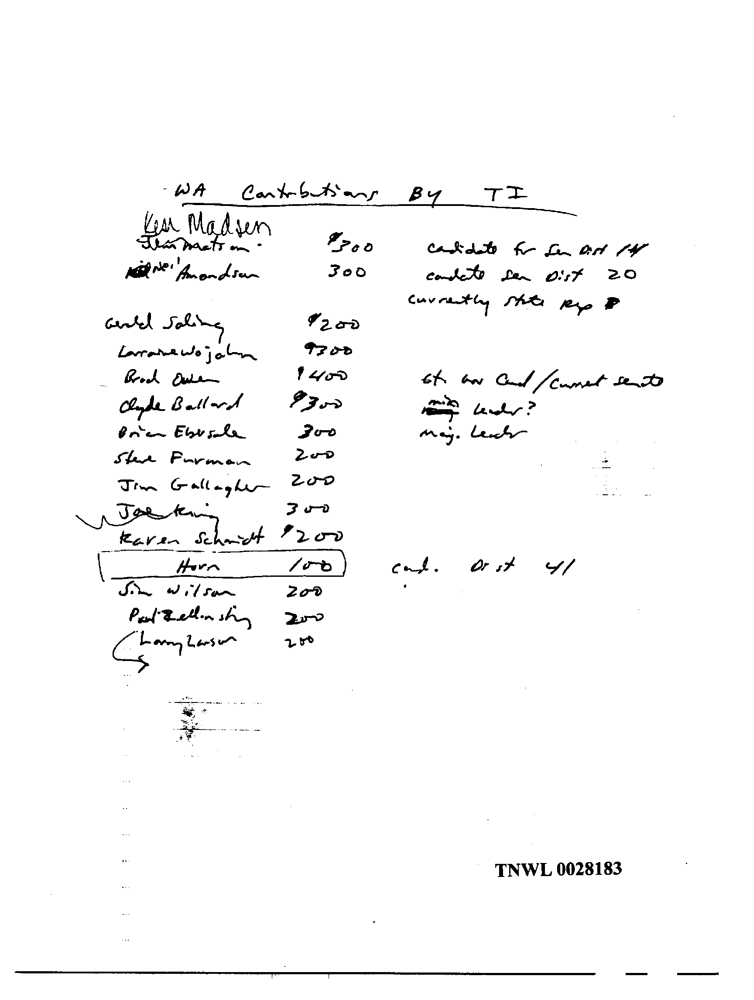 WA Contributions By TI
Ken Madsen
Jim Matson - $300 candidate for Sen Dist 14
Neil Amondson 300 candate Sen Dist 20
Currently State Rep
Gerald Saling $200
Lorraine Wojahn $300
Brad Owen $400 Lt. Gov Cand/Current senate
Clyde Ballard $300 min leader?
Brian Ebersole 300 maj. Leader
Steve Furman 200
Jim Gallagher 200
Joe King 300
Karen Schmidt $200
Horn 100 cand. Dist 41
Sim Wilson 200
Paul Zellinsky 200
Larry Larson 200
TNWL 0028183